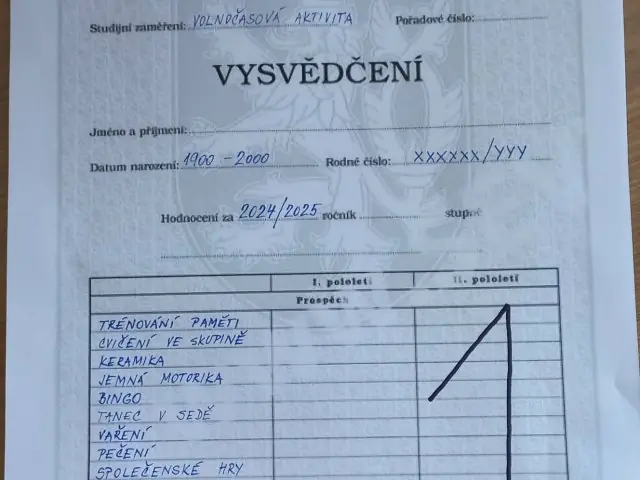 Studijní zaměření: VOLNOČASOVÁ AKTIVITA Pořadové číslo:
VYSVĚDČENÍ
Jméno a příjmení:
Datum narození: 1900 - 2000 Rodné číslo: XXXXXX/YYY
Hodnocení za 2024/2025 ročník stupeň
I. pololetí II. pololetí
Prospěch
TRÉNOVÁNÍ PAMĚTI
CVIČENÍ VE SKUPINĚ
KERAMIKA
JEMNÁ MOTORIKA
BINGO
TANEC V SEDĚ
VAŘENÍ
PEČENÍ
SPOLEČENSKÉ HRY
1